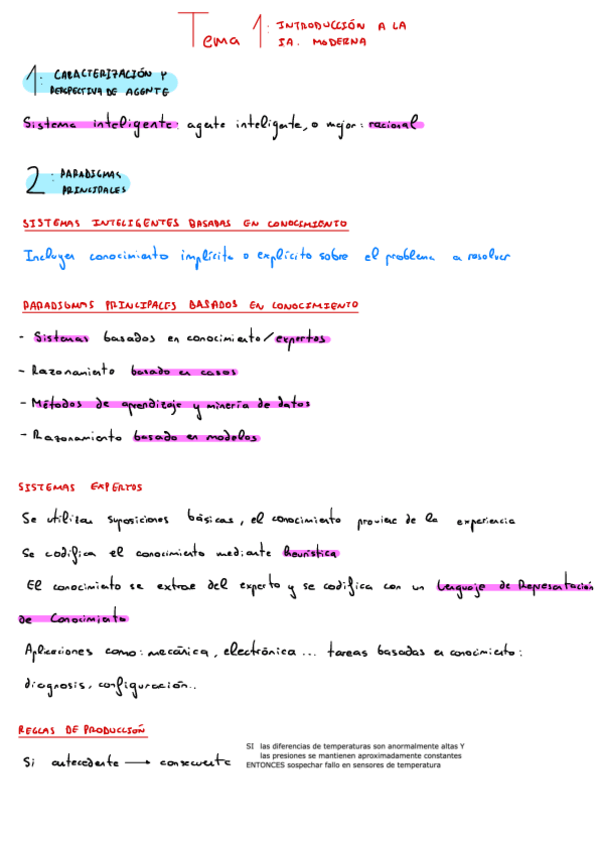 Tema 1: INTRODUCCIÓN A LA
IA. MODERNA
1: CARACTERIZACIÓN Y
PERSPECTIVA DE AGENTE
Sistema inteligente: agente inteligente, o mejor: racional
2: PARADIGMAS
PRINCIPALES
SISTEMAS INTELIGENTES BASADAS EN CONOCIMIENTO
Incluyen conocimiento implícito o explícito sobre el problema a resolver
PARADIGMAS PRINCIPALES BASADOS EN CONOCIMIENTO
- Sistemas basados en conocimiento/expertos
- Razonamiento basado en casos
- Métodos de aprendizaje y minería de datos
- Razonamiento basado en modelos
SISTEMAS EXPERTOS
Se utilizan suposiciones básicas, el conocimiento proviene de la experiencia
Se codifica el conocimiento mediante heurística
El conocimiento se extrae del experto y se codifica con un Lenguaje de Representación
de Conocimiento
Aplicaciones como: mecánica, electrónica... tareas basadas en conocimiento:
diagnosis, configuración..
REGLAS DE PRODUCCIÓN
Si antecedente → consecuente
SI las diferencias de temperaturas son anormalmente altas Y
las presiones se mantienen aproximadamente constantes
ENTONCES sospechar fallo en sensores de temperatura